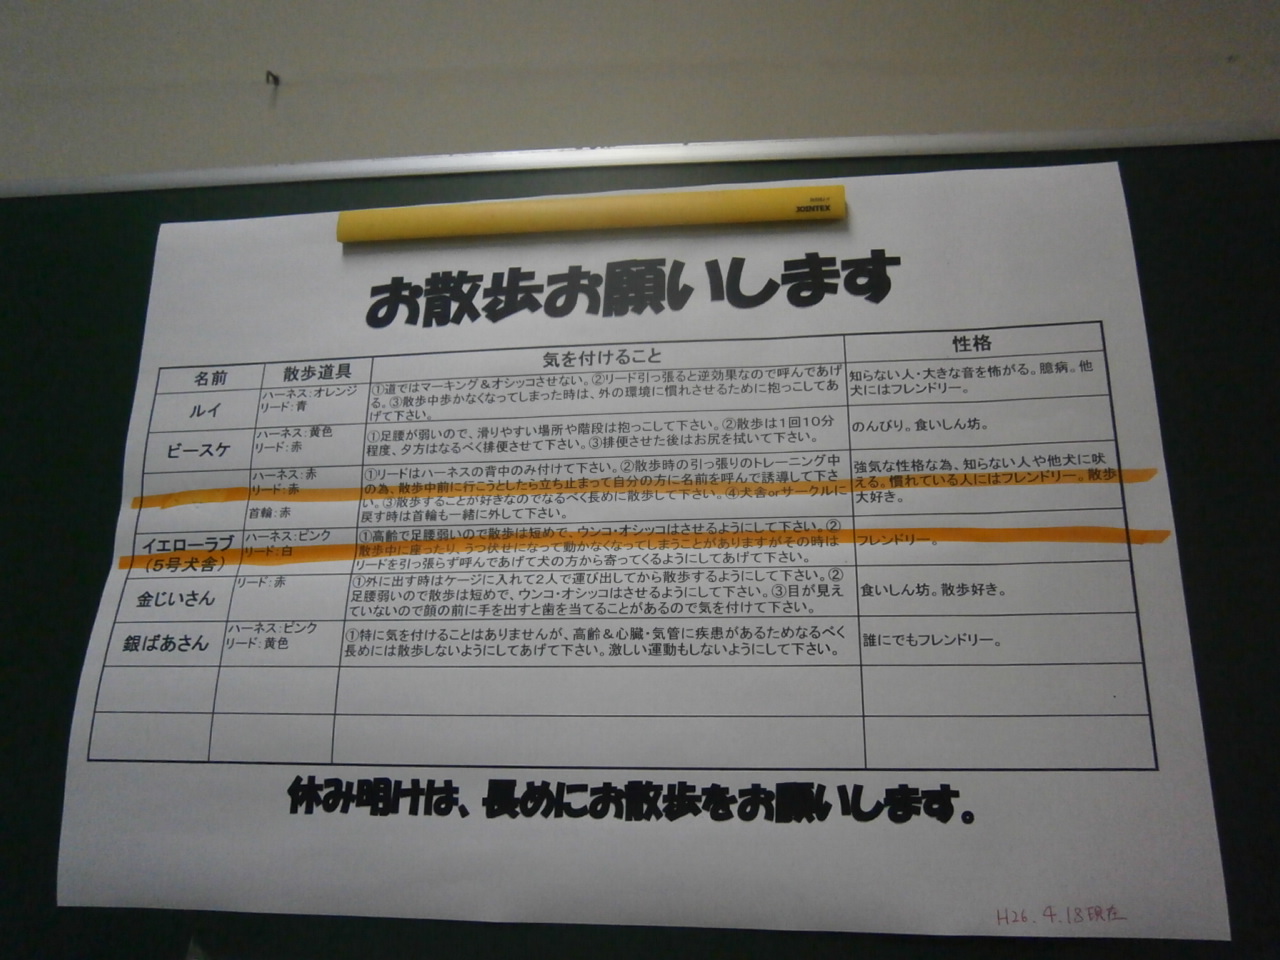 JOINTEX
お散歩お願いします
名前 散歩道具 気を付けること 性格
ルイ
ハーネス:オレンジ
リード:青
①道ではマーキング&オシッコさせない。②リード引っ張ると逆効果なので呼んであげ
る。③散歩中歩かなくなってしまった時は、外の環境に慣れさせるために抱っこしてあ
げて下さい。
知らない人・大きな音を怖がる。臆病。他
犬にはフレンドリー。
ピースケ
ハーネス:黄色
リード:赤
①足腰が弱いので、滑りやすい場所や階段は抱っこして下さい。②散歩は1回10分
程度、夕方はなるべく排便させて下さい。③排便させた後はお尻を拭いて下さい。
のんびり。食いしん坊。
ハーネス:赤
リード:赤
首輪:赤
①リードはハーネスの背中のみ付けて下さい。②散歩時の引っ張りのトレーニング中
の為、散歩中前に行こうとしたら立ち止まって自分の方に名前を呼んで誘導して下さ
い。③散歩することが好きなのでなるべく長めに散歩して下さい。④犬舎orサークルに
戻す時は首輪も一緒に外して下さい。
強気な性格な為、知らない人や他犬に吠
える。慣れている人にはフレンドリー。散歩
大好き。
イエローラブ
(5号犬舎)
ハーネス:ピンク
リード:白
①高齢で足腰弱いので散歩は短めで、ウンコ・オシッコはさせるようにして下さい。②
散歩中に座ったり、うつ伏せになって動かなくなってしまうことがありますがその時は
リードを引っ張らず呼んであげて犬の方から寄ってくるようにしてあげて下さい。
フレンドリー。
金じいさん
リード:赤
①外に出す時はケージに入れて2人で運び出してから散歩するようにして下さい。②
足腰弱いので散歩は短めで、ウンコ・オシッコはさせるようにして下さい。③目が見え
ていないので顔の前に手を出すと歯を当てることがあるので気を付けて下さい。
食いしん坊。散歩好き。
銀ばあさん
ハーネス:ピンク
リード:黄色
①特に気を付けることはありませんが、高齢&心臓・気管に疾患があるためなるべく
長めには散歩しないようにしてあげて下さい。激しい運動もしないようにして下さい。
誰にでもフレンドリー。
休み明けは、長めにお散歩をお願いします。
H26.4.18現在